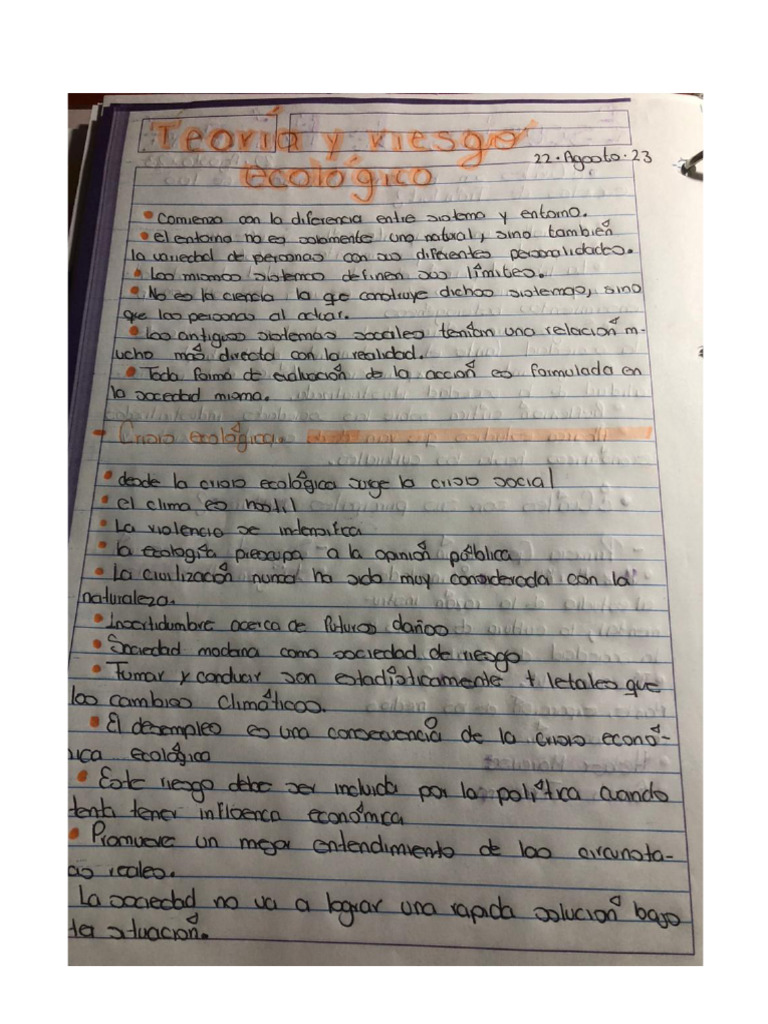 Teoría y riesgo
22 · Agosto · 23
ecológico
• Comienza con la diferencia entre sistema y entorno.
• el entorno no es solamente uno natural, sino también
la variedad de personas con sus diferentes personalidades.
• Los mismos sistemas definen sus límites.
• No es la ciencia la que construye dichos sistemas, sino
que las personas al actuar.
• Los antiguos sistemas sociales tenían una relación m-
ucho más directa con la realidad.
• Toda forma de evaluación de la acción es formulada en
la sociedad misma.
- Crisis ecológica.
• desde la crisis ecológica surge la crisis social
• el clima es hostil
• La violencia se intensifica
• la ecología preocupa a la opinión pública
• La civilización nunca ha sido muy considerada con la
naturaleza.
• Incertidumbre acerca de futuros daños
• Sociedad moderna como sociedad de riesgo
• Fumar y conducir son estadísticamente + letales que
los cambios climáticos.
• El desempleo es una consecuencia de la crisis econó-
ica ecológica
• Este riesgo debe ser incluido por la política cuando
tenta tener influenca económica
• Promueve un mejor entendimiento de las circunsta-
as reales.
La sociedad no va a lograr una rapida solución bajo
ta situación.